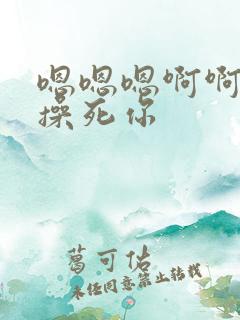 嗯嗯嗯啊啊
操死你
葛可佑
未经同意禁止转载